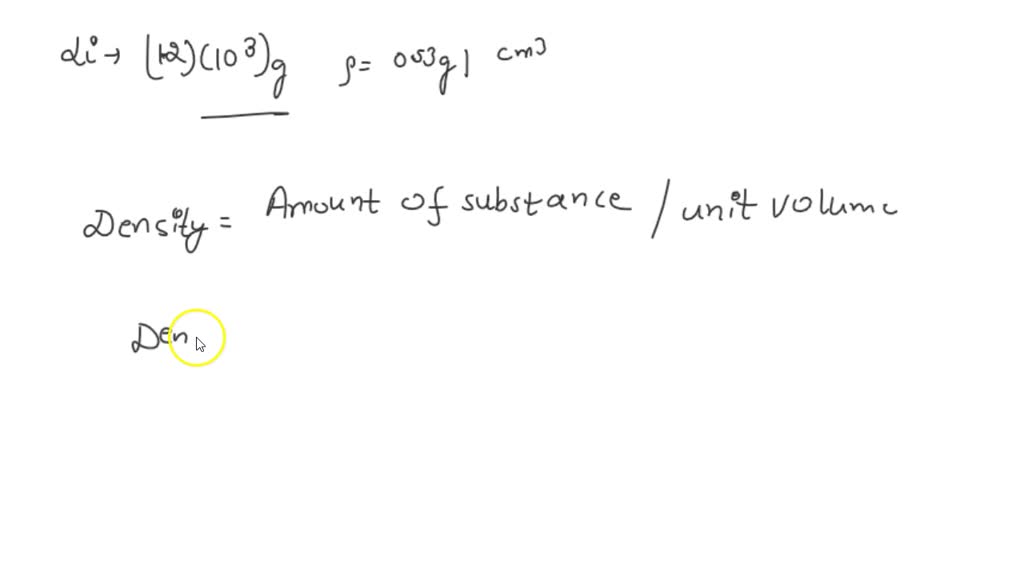 Li → (12)(10³)g ρ = 0.53g/ cm3
Density = Amount of substance / unit volume
Den